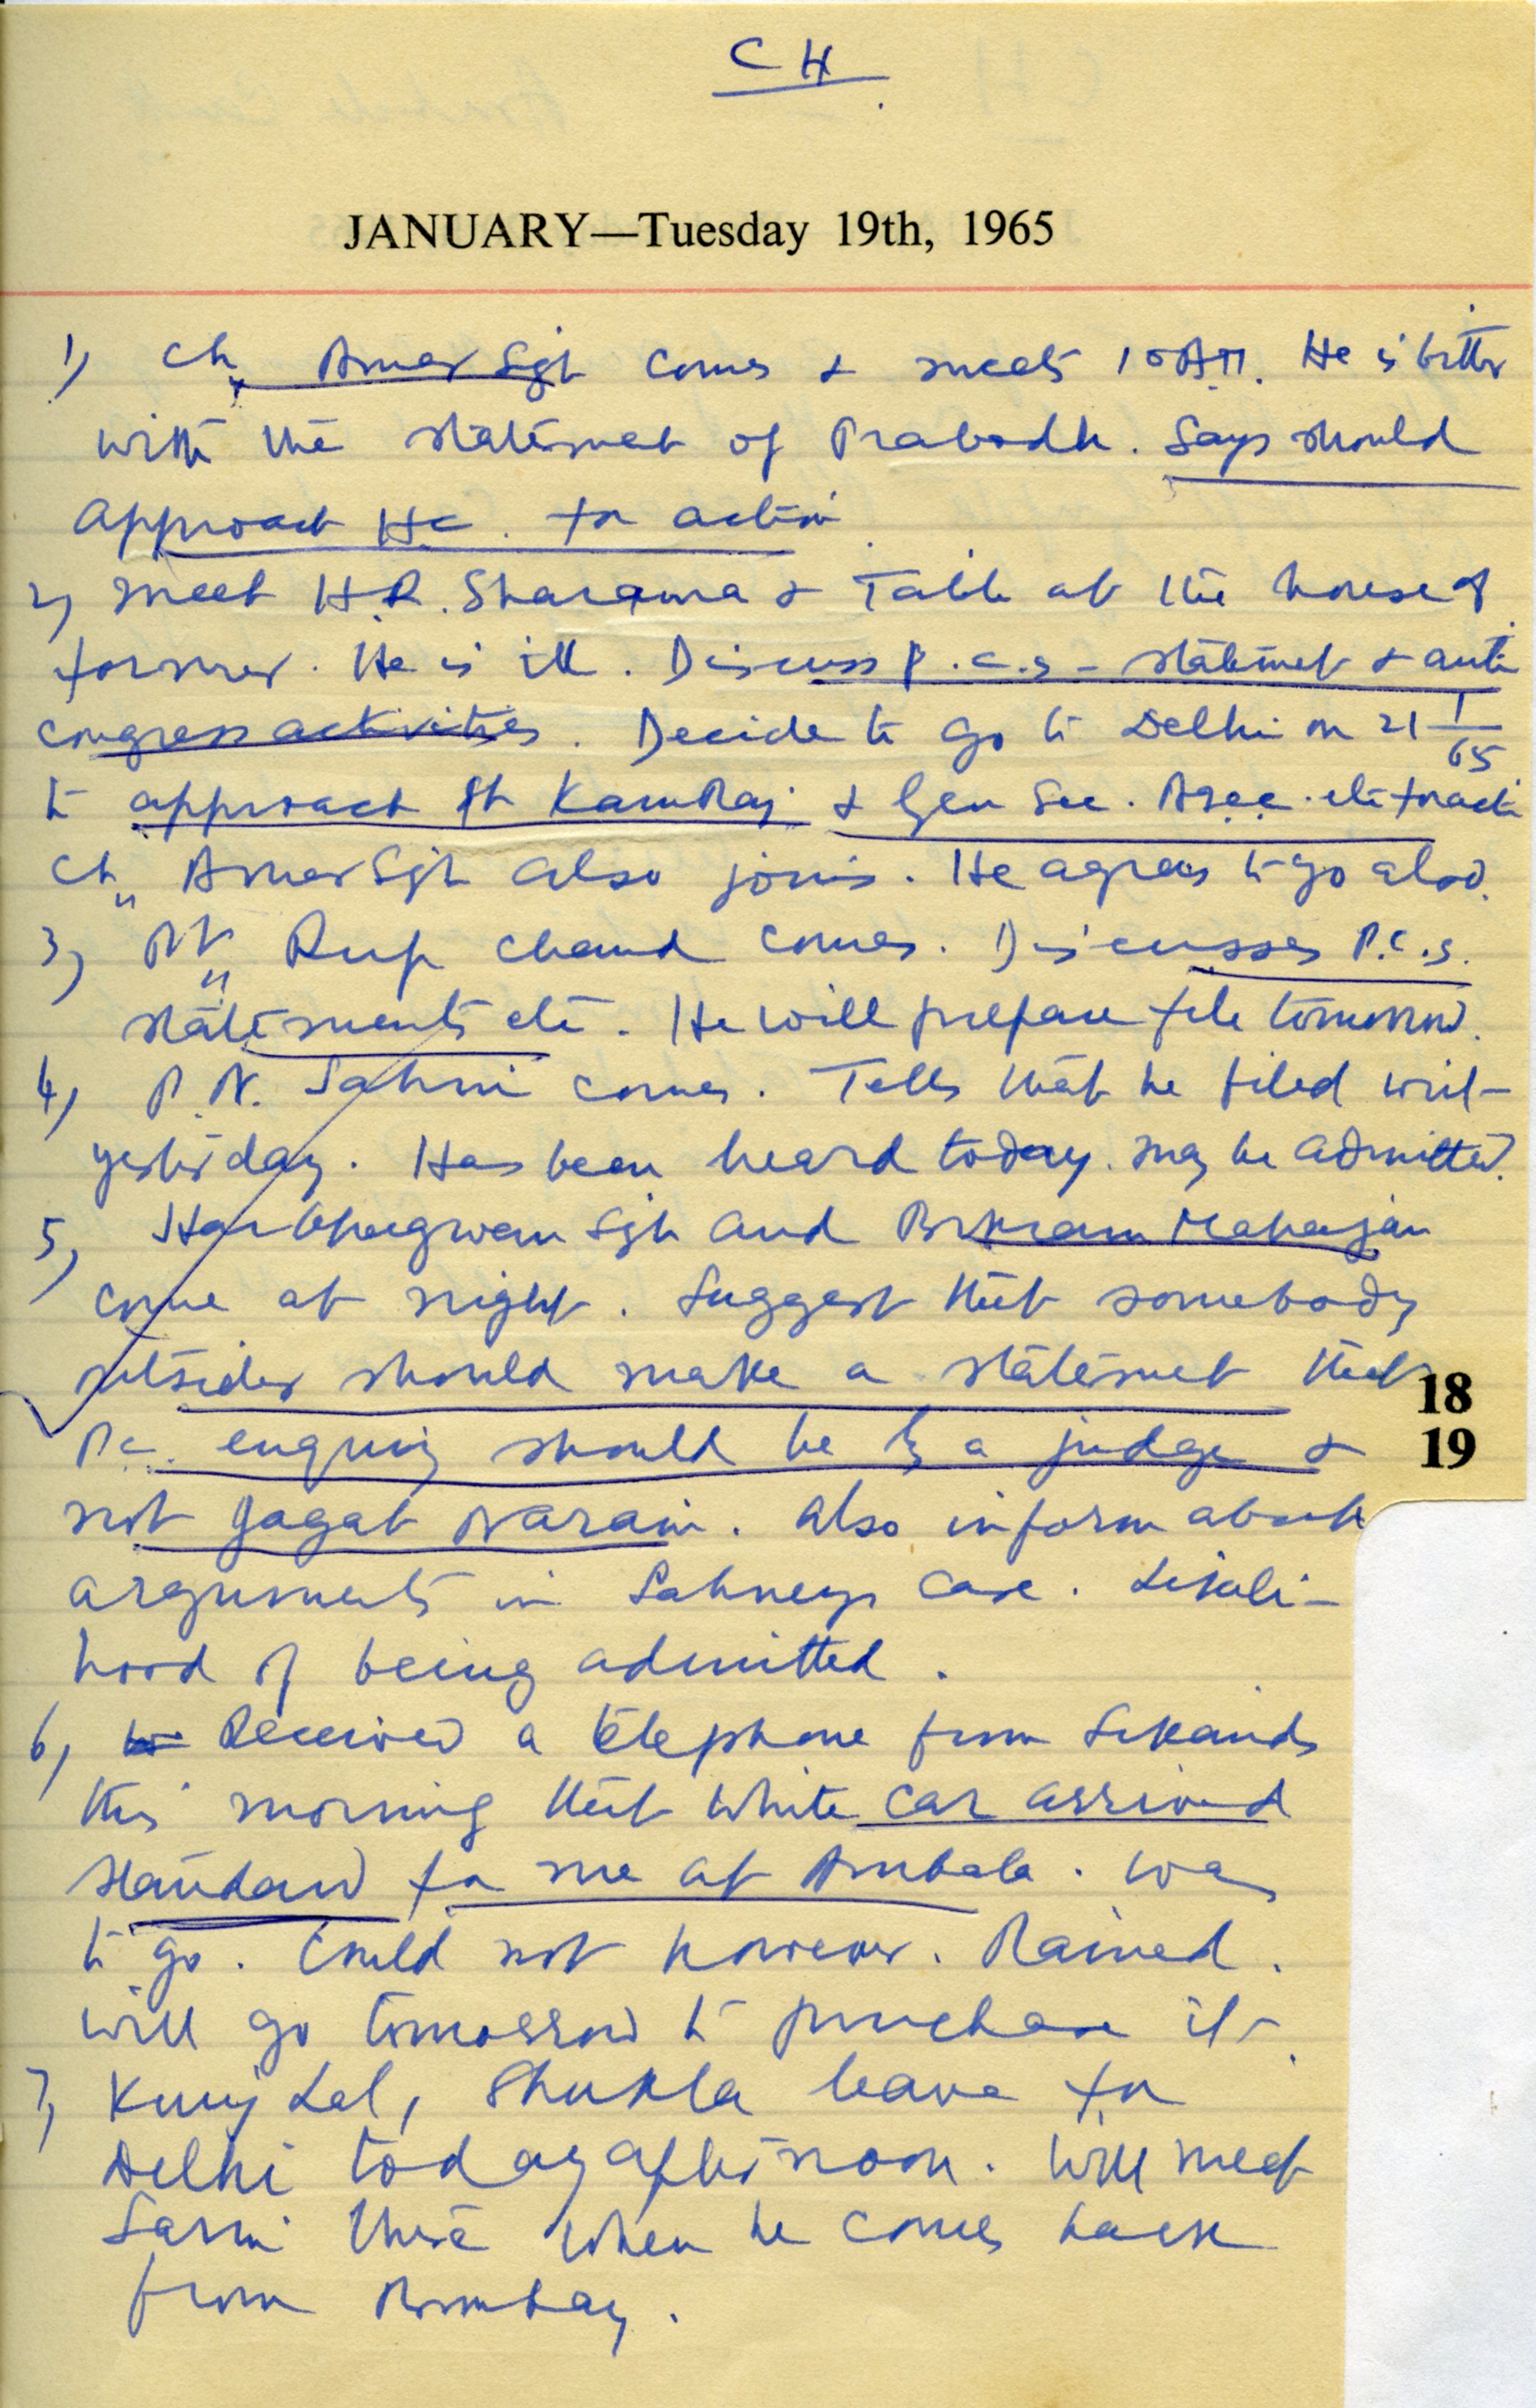 CH
JANUARY—Tuesday 19th, 1965
1) Ch. Amar Sgh comes & meets 10 AM. He is bitter
with the statement of Prabodh. Says should
approach H.C. for action.
2) meet H.R. Sharma & Talib at the house of
former. He is ill. Discuss P.C.s - statemet & anti
congress activities. Decide to go to Delhi on 21 1/65
to approach Sh KamRaj & Gen Sec. etc for acti
Ch. Amar Sgh also joins. He agrees to go also.
3) Pt. Rup Chand comes. Discusses P.C.s.
statements etc. He will prepare file tomorrow.
4) P.N. Sahni comes. Tells that he filed writ
yesterday. Has been heard today. may be admitted.
5) Harbhagwan Sgh and Bikram Mahajan
come at night. Suggest that somebody
outsider should make a statemet that
P.C. enquiry should be by a judge &
not Jagat Narain. Also inform about
arguments in Sahneys case. Likeli-
hood of being admitted.
18
19
6) Received a telephone from Sikands
this morning that white car arrived
standard for me at Ambala. Was
to go. Could not however. Rained.
will go tomorrow to purchase it.
7) Kunj Lal, Shukla leave for
Delhi today afternoon. Will meet
there when he comes back
from Bombay.